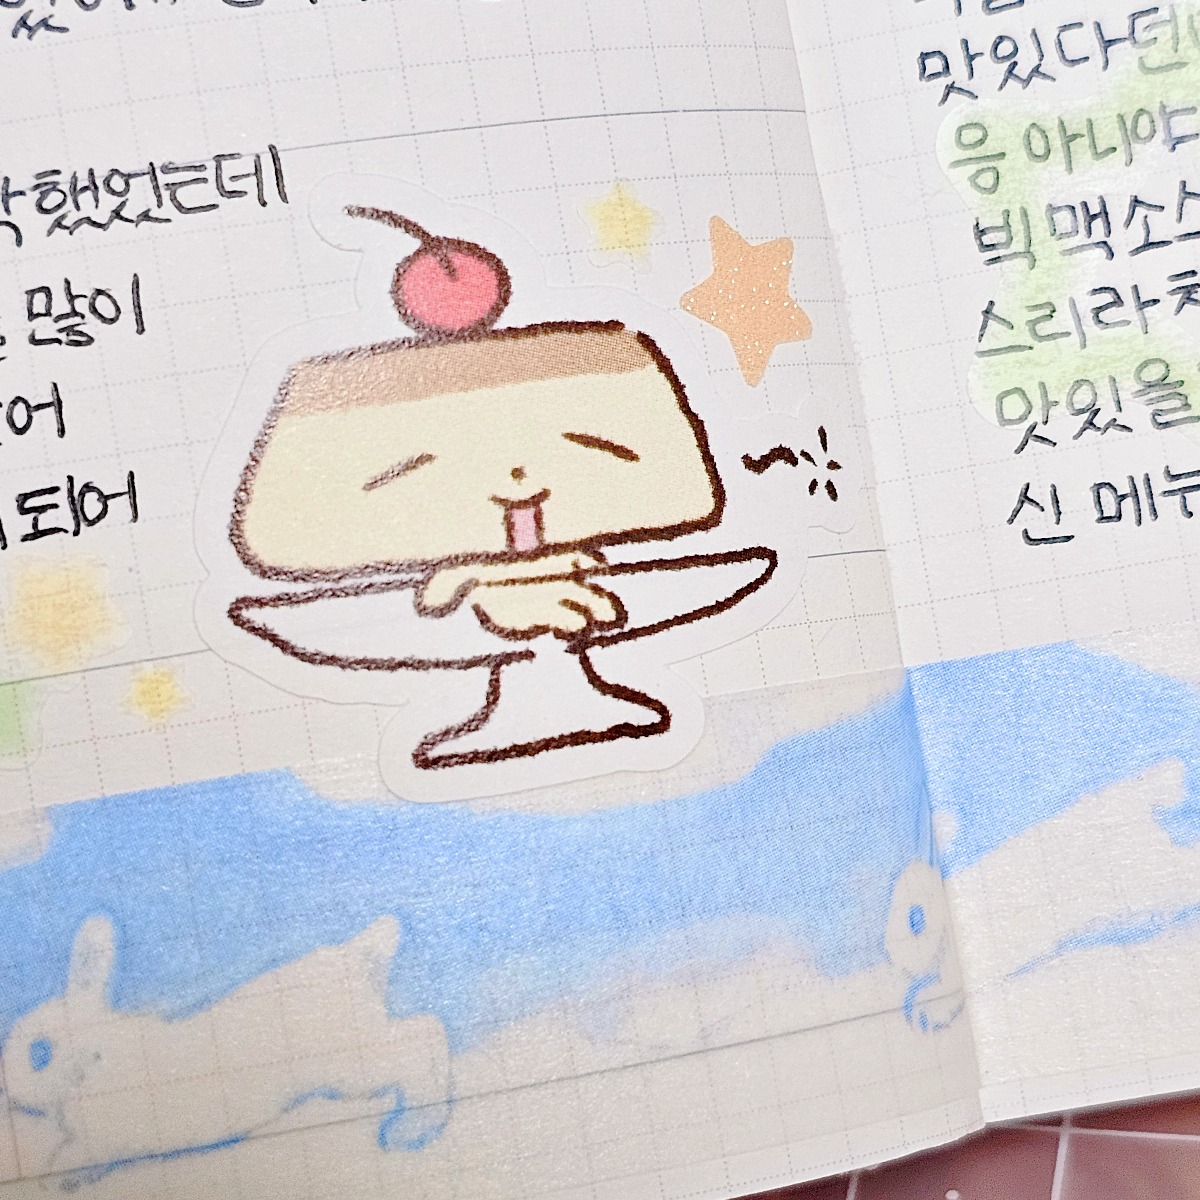 했었는데
많이
되어
맛있다던
응 아니야
빅맥소스
스리라차
맛있을
신 메뉴